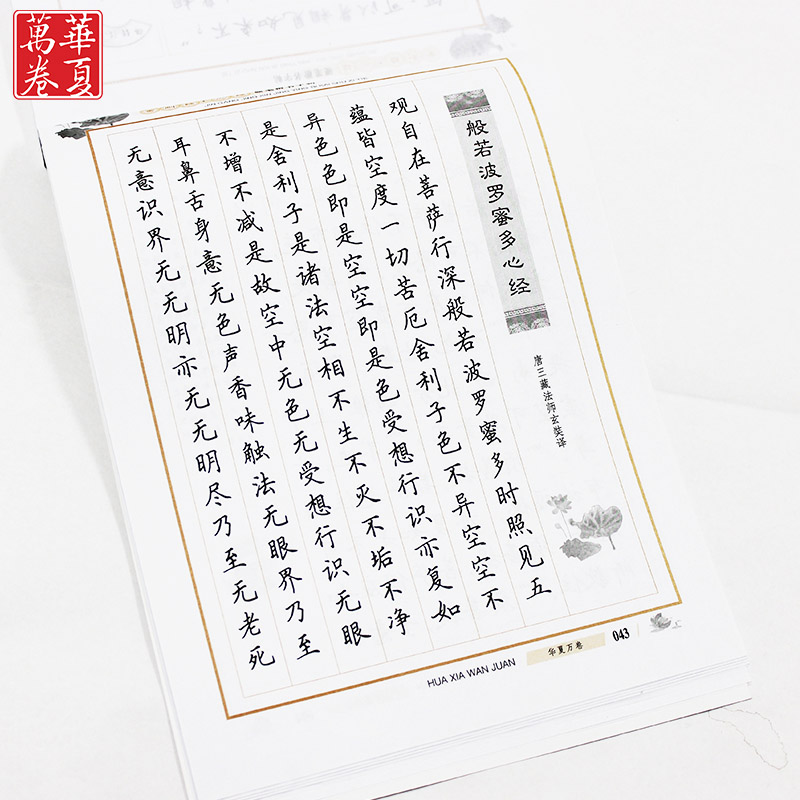 華夏
萬卷
般若波罗蜜多心经
唐三藏法师玄奘译
观自在菩萨行深般若波罗蜜多时照见五
蕴皆空度一切苦厄舍利子色不异空空不
异色色即是空空即是色受想行识亦复如
是舍利子是诸法空相不生不灭不垢不净
不增不减是故空中无色无受想行识无眼
耳鼻舌身意无色声香味触法无眼界乃至
无意识界无无明亦无无明尽乃至无老死
HUA XIA WAN JUAN
华夏万卷
043